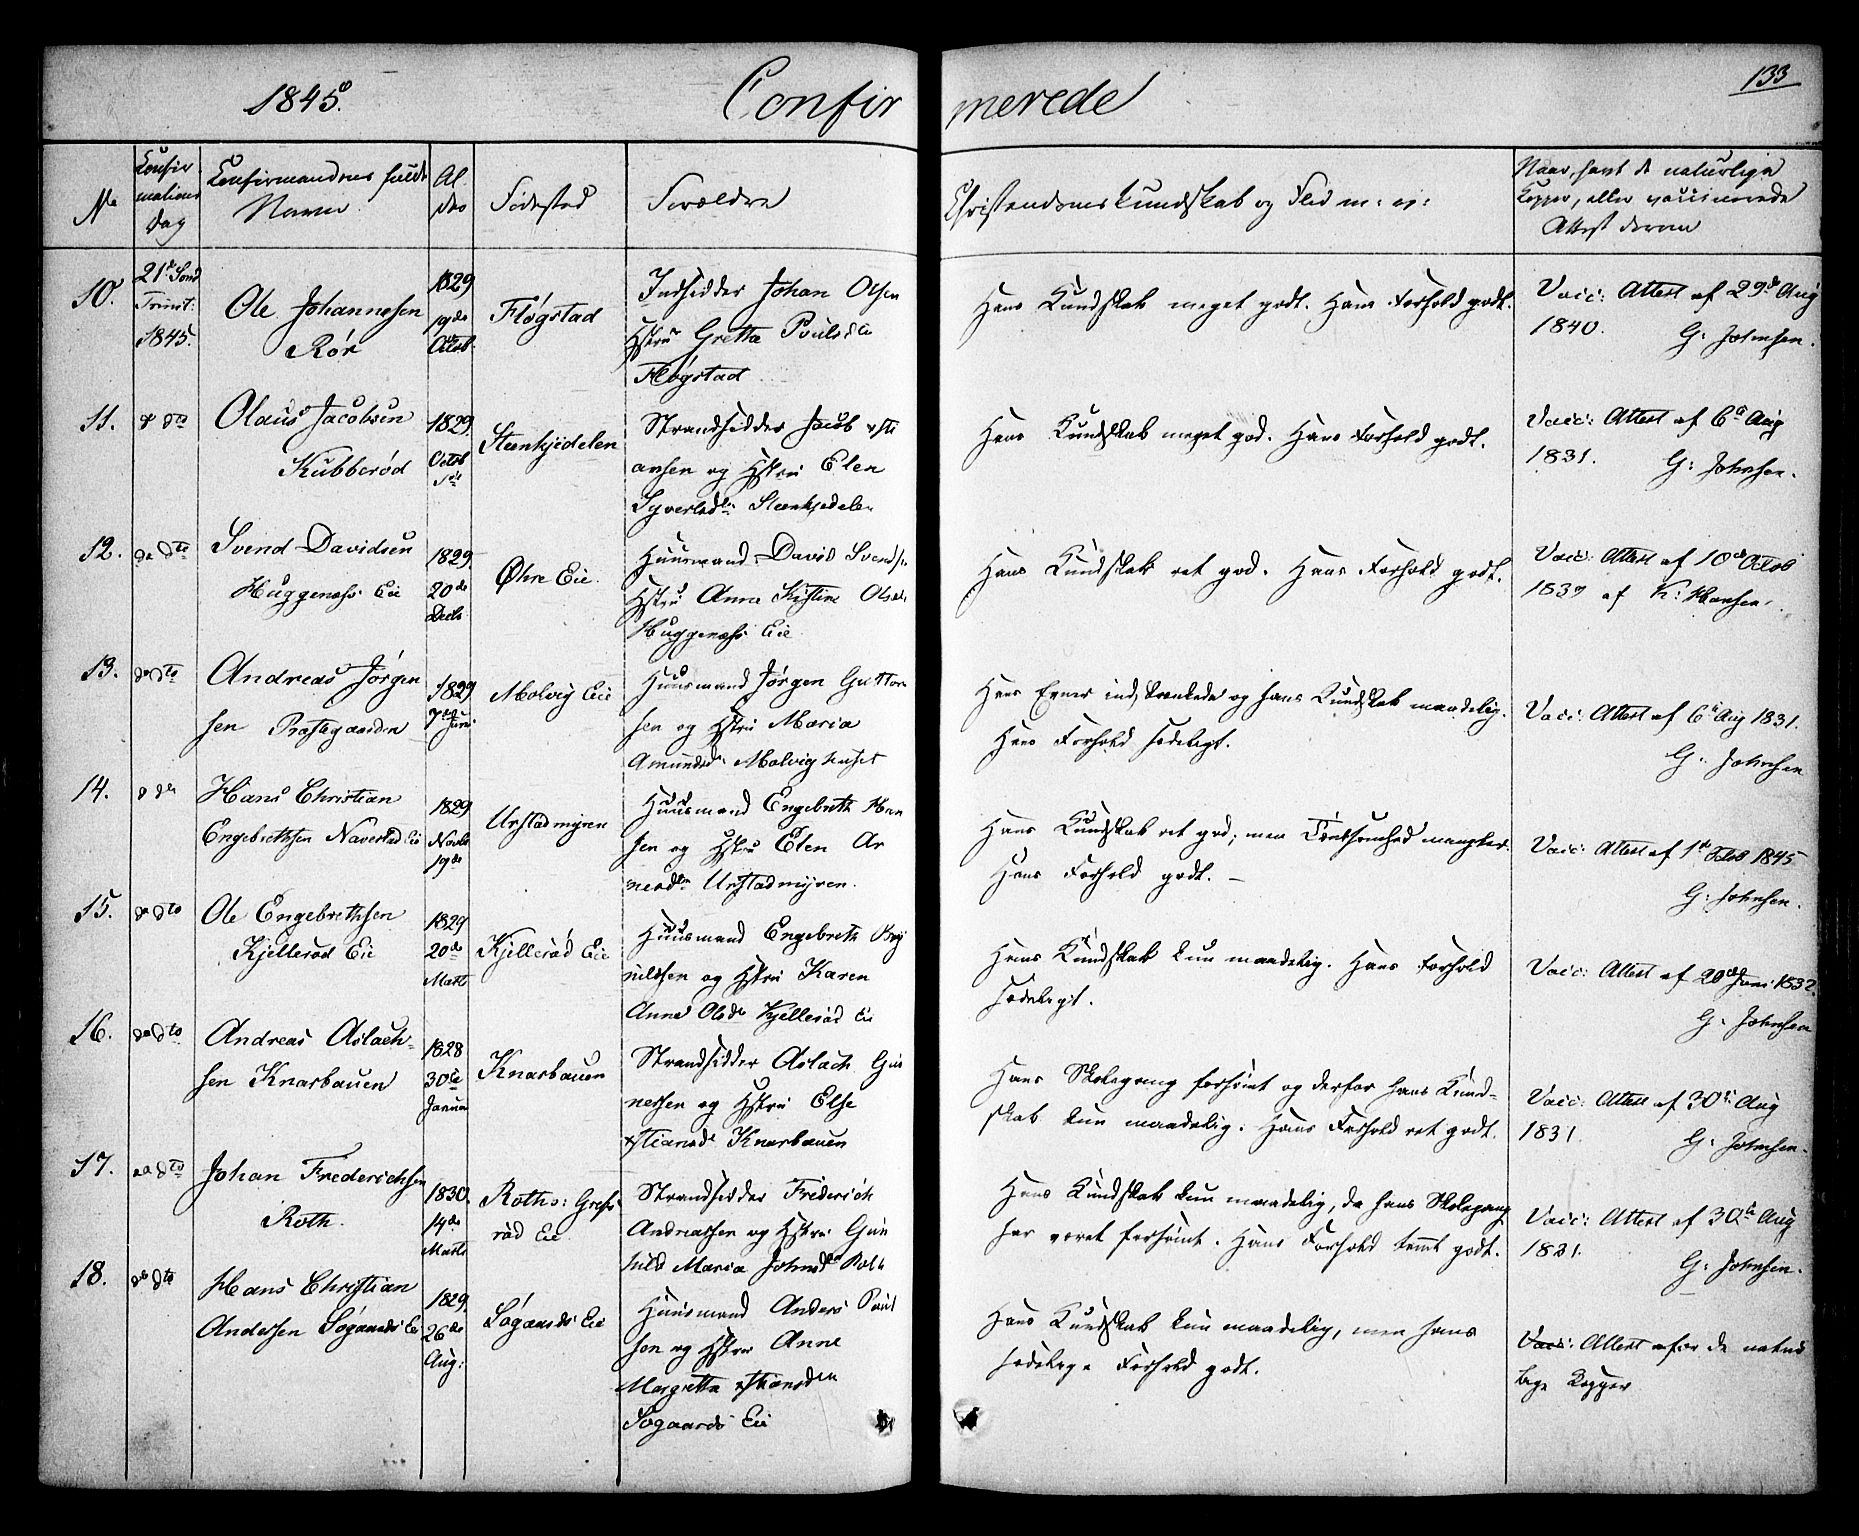 1845.
Confirmerede
133
No
Confirmations Dag
Confirmandens fulde Navn
Alder
Födested
Forældre
Christendomskundskab og Flid m: v:
Naar, havt de naturlige
Kopper, eller vaccinerede
Attest derom
10.
21de Sønd
Trinit:
1845.
Ole Johannesen
Rör
1829
19de
Octob
Flögstad
Indsidder Johan Olsen
Hstru Gretta Poulsdtr
Flögstad
Hans Kundskab meget godt. Hans Forhold godt.
Vacc: Attest af 29de Aug
1840. G: Johnsen.
11.
do dto
Olaus Jacobsen
Kubberød
1829
Octob
Steenkjedelen
Strandsidder Jacob Christiansen og Hstru Elen
Syversdtr Steenkjedelen
Hans Kundskab meget god. Hans Forhold godt.
Vacc: Attest af 6te Aug
1831. G: Johnsen.
12.
do dto
Svend Davidsen
Huggenæss Eie
1829
20de
Decb
Øhre Eie.
Huusmand David Svendsen
Hstru Anne Kistine Olsdtr
Huggenæss Eie
Hans Kundskab ret god. Hans Forhold godt.
Vacc: Attest af 10de Octob
1839 af N: Hansen.
13.
do dto
Andreas Jörgen
sen Præstegaarden
1829
7de Juni
Molvig Eie
Huusmand Jörgen Guttorm
sen og Hstru Maria
Amundsdr Molvighuset
Hans Evner indskrænkede og hans Kundskab maadelig.
Hans Forhold sædeligt.
Vacc: Attest af 6te Aug 1831.
G: Johnsen
14.
do dto
Hans Christian
Engebrethsen Naverstad Eie
1829
Novbr
19de
Urstadmyren
Huusmand Engebreth Han
sen og Hstru Elen Ar
nesdtr Urstadmyren.
Hans Kundskab ret god; men Tænksomhed mangler.
Hans Forhold godt. —
Vacc: Attest af 1ste Febr 1845
G: Johnsen.
15.
do dto
Ole Engebrethsen
Kjellerød Eie
1829
20de
Marts
Kjellerød Eie
Huusmand Engebreth Bry
nildsen og Hstru Karen
Anne Olsdr Kjellerød Eie
Hans Kundskab kun maadelig. Hans Forhold
sædeligt.
Vacc: Attest af 20de Juni 1832.
G: Johnsen
16.
do dto
Andreas Aslach-
sen Knarbauen
1828
30te
Januar
Knarbauen
Strandsidder Aslach Gun
nersen og Hstru Else
Christiansdr Knarbauen
Hans Skolegang forsömt og derfor hans Kund-
skab kun maadelig. Hans Forhold ret godt.
Vacc: Attest af 30te Aug
1831. G: Johnsen.
17.
do dto
Johan Frederichsen
Roth.
1830.
14de
Marts
Roths: Grefs
rød Eie
Strandsidder Frederich
Andreassen og Hstru Gun
hild Maria Johnsdtr Roth
Hans Kundskab kun maadelig, da hans Skolegang
har været forsömt. Hans Forhold temt godt.
Vacc: Attest af 30te Aug
1831. G: Johnsen.
18.
do dto
Hans Christian
Andersen Sögaards Eie
1829
26de
Aug:
Sögaards Eie
Huusmand Anders Paul
sen og Hstru Anne
Margretta Christiansden
Sögaards Eie
Hans Kundskab kun maadelig, men hans
sædelige Forhold godt.
Vacc: Attest for de natur
lige Kopper